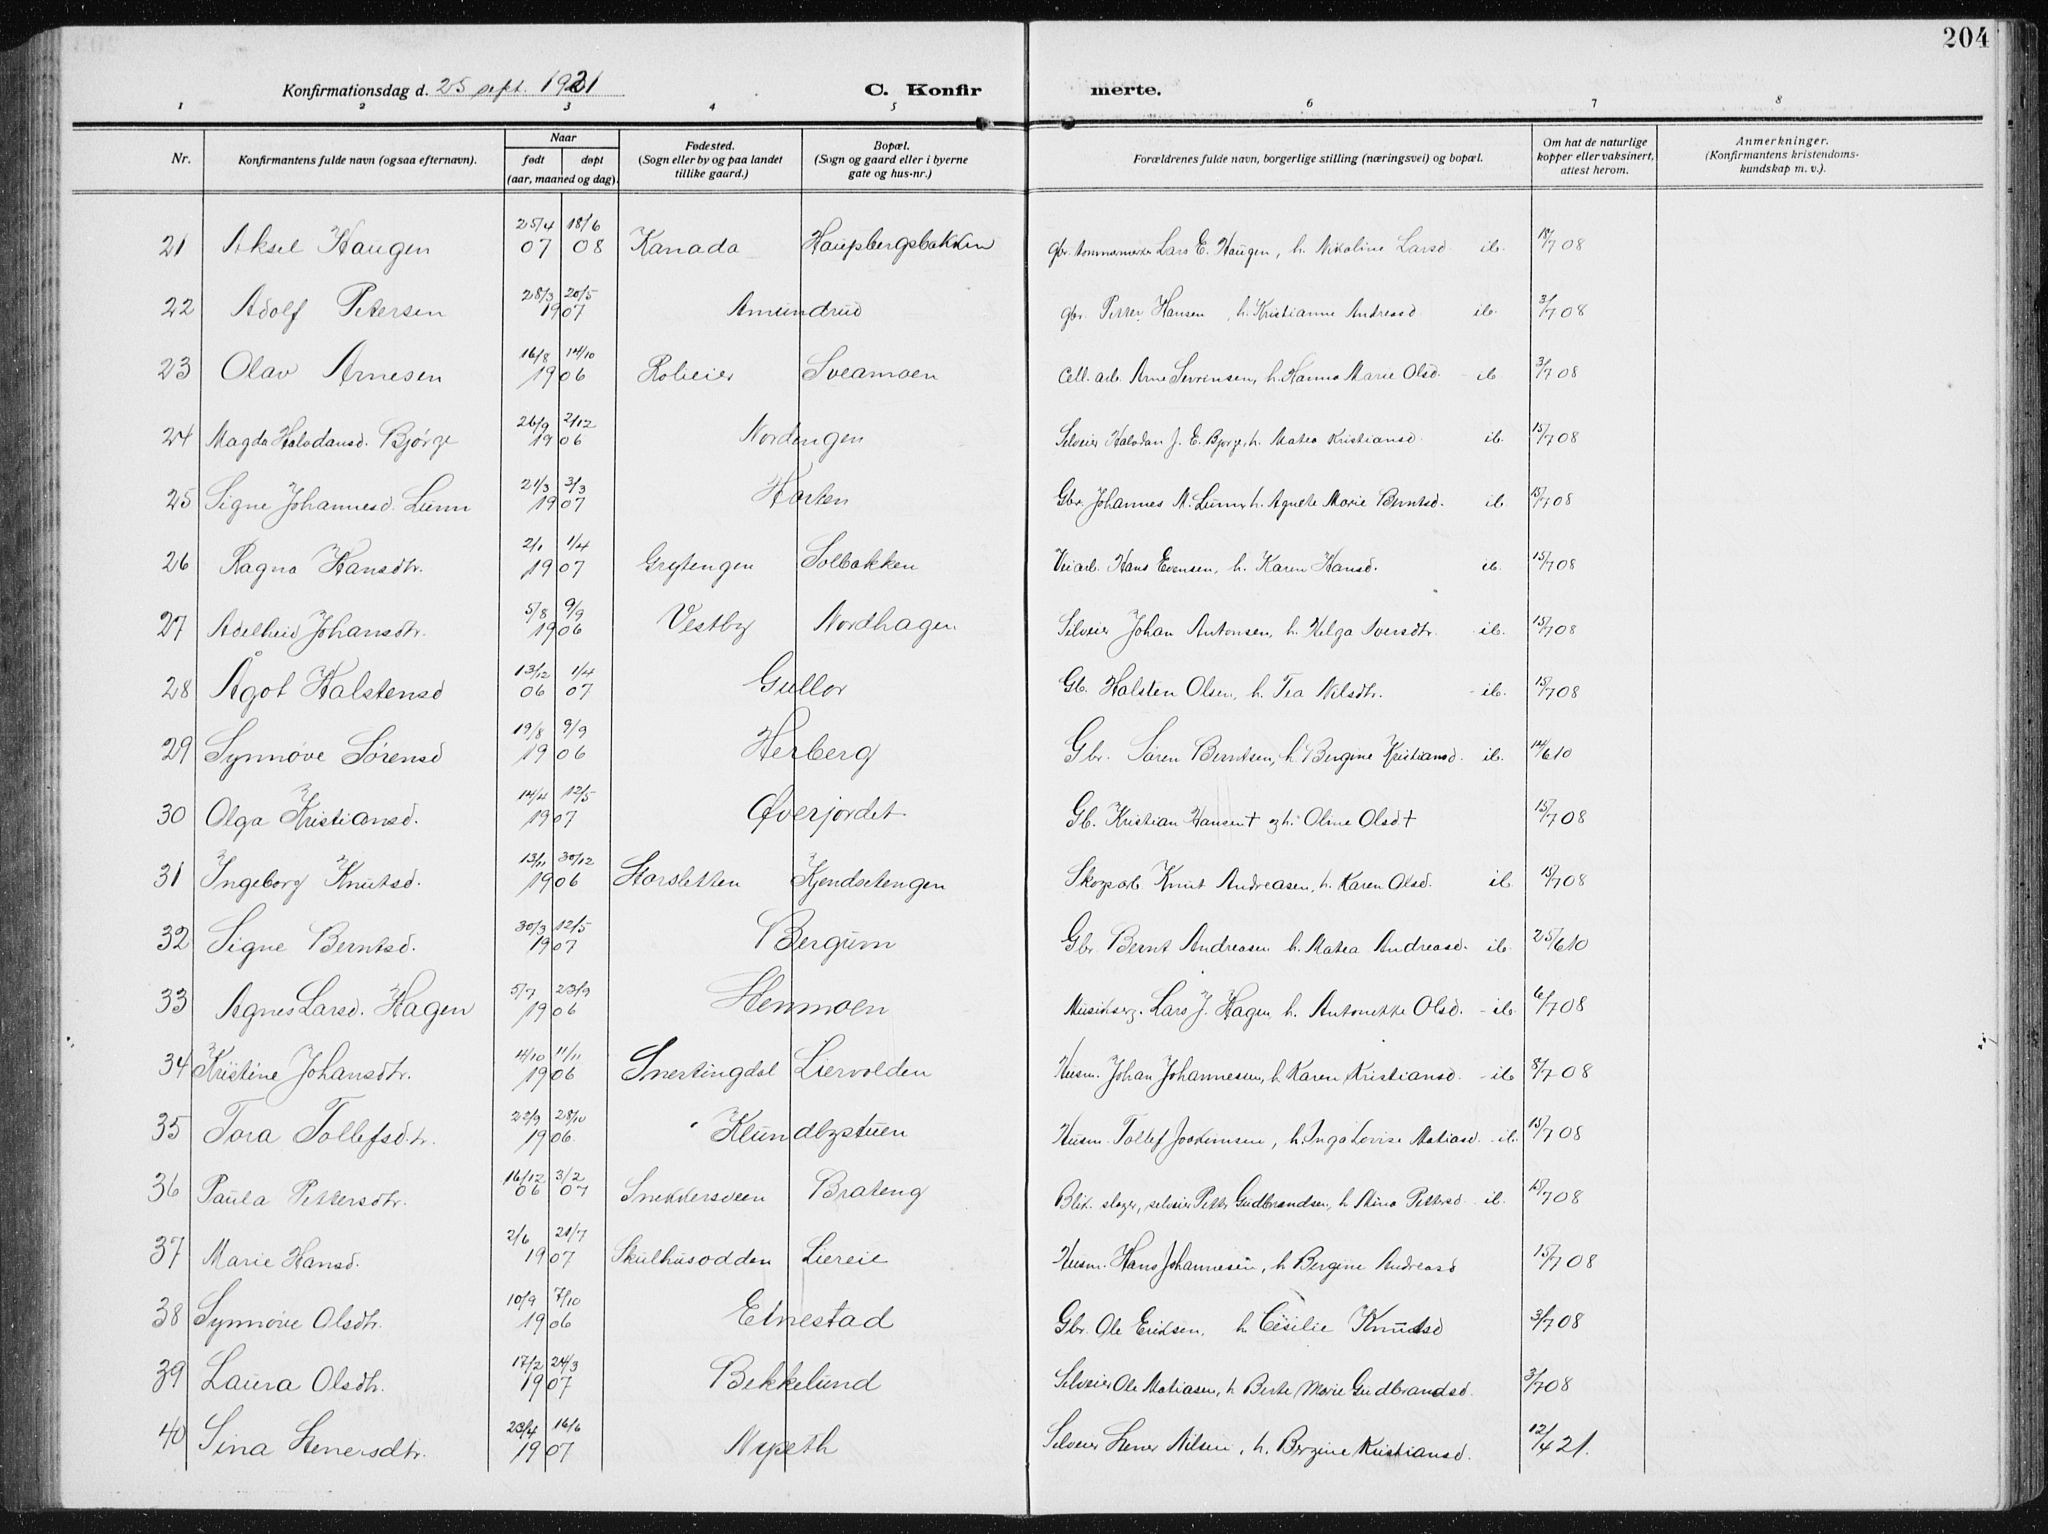 204
Konfirmationsdag d. 25 sept. 1921
C. Konfirmerte.
1 2 3 4 5 6 7 8
Nr.
Konfirmantens fulde navn (ogsaa efternavn).
Naar
født døpt
(aar, maaned og dag).
Fødested.
(Sogn eller by og paa landet
tillike gaard.)
Bopæl.
(Sogn og gaard eller i byerne
gate og hus-nr.)
Forældrenes fulde navn, borgerlige stilling (næringsvei) og bopæl.
Om hat de naturlige
kopper eller vaksinert,
attest herom.
Anmerkninger.
(Konfirmantens kristendoms-
kundskap m. v.).
21 Aksel Haugen 25/4 07 18/6 08 Kanada Haupsbergsbakken gbr. Lars E. Haugen, h. Nikoline Larsd. ib. 18/7 08
22 Adolf Petersen 28/3 20/5 1907 Amundrud gbr. Petter Hansen, h. Kristianne Andreasd ib. 3/7 08
23 Olav Arnesen 16/8 14/10 1906 Roleier Sveamoen Cell. arb. Arne Severinsen, h. Hanna Marie Olsd. ib 3/7 08
24 Magda Halvdansd. Bjørge 26/9 2/12 1906 Nordengen Selveier Halvdan J. E. Bjørge, h. Matea Kristiansd. ib. 15/7 08
25 Signe Johannesd. Lunn 21/3 1907 Gbr. Johannes M. Lunn, h. Agnete Marie Berntsd. ib. 15/7 08
26 Ragna Hansdtr. 2/1 1/4 1907 Grytengen Solbakken Veiarb. Hans Evensen, h. Karen Hansd. ib. 15/7 08
27 Adelheid Johansdtr. 5/8 9/9 1906 Vestby Nordhagen Selveier Johan Antonsen, h. Helga Iversdtr. ib. 15/7 08
28 Ågot Halstensd 13/12 06 1/4 07 Gullor Gb. Halsten Olsen, h. Tea Nilsdtr. ib. 15/7 08
29 Synnøve Sørensd 19/8 9/9 1906 Herberg Gbr. Søren Berntsen, h. Bergine Kristiansd. ib. 14/6 10
30 Olga Kristiansd. 14/4 12/5 1907 Øverjordet Gb. Kristian Hansen † og h. Oline Olsd † 15/7 08
31 Ingeborg Knutsd. 13/11 30/12 1906 Storsletten Kjendsetengen Skogsarb. Knut Andreasen, h. Karen Olsd. ib 15/7 08
32 Signe Berntsd. 30/3 12/5 1907 Bergum Gbr. Bernt Andreasen h. Matea Andreasd. ib. 25/6 10
33 Agnes Larsd. Hagen 5/7 23/9 1906 Henmoen Lars J. Hagen, h. Antonette Olsd. ib. 6/7 08
34 Kristine Johansdtr. 4/10 11/11 1906 Snertingdal Liervolden Husm. Johan Johannesen, h. Karen Kristiansd. ib 8/7 08
35 Tora Tollefsdtr. 22/9 28/10 1906. Klundbystuen Husm. Tollef Joakimsen, h. Inga Lovise Matiasd. ib. 15/7 08
36 Paula Pettersdtr. 16/12 06 3/2 07 Snekkersveen Brateng Blik. slager, selveier Petter Gudbrandsen, h. Mina Pettersd. ib. 15/7 08
37 Marie Hansd. 2/6 21/7 1907 Skulhusodden Liereie Husm. Hans Johannesen, h. Bergine Andreasd 15/7 08
38 Synnøve Olsdtr. 10/9 7/10 1906 Etnestad Gbr. Ole Eriksen, h Cesilie Knudsd 3/7 08
39 Laura Olsdtr. 17/2 24/3 1907 Bekkelund Selveier Ole Matiasen, h Berte Marie Gudbrandsd. 3/7 08
40 Sina Stenersdtr. 23/4 16/6 1907 Nyseth Selveier Stener Nilsen, h. Bergine Kristiansd. 12/4 21.